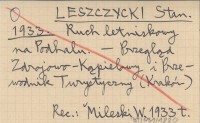 LESZCZYCKI Stan.
1933. Ruch letniskowy
na Podhalu — Przegląd
Zdrojowo-Kąpielowy i Prze-
wodnik Turystyczny (Kraków)
Rec.: Milecki W. 1933 t.